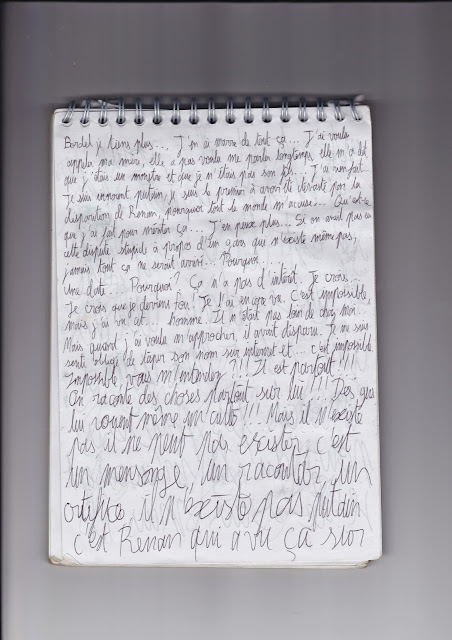 Bordel j'tiens plus... J'en ai marre de tout ça... J'ai voulu
appeler ma mère, elle a pas voulu me parler longtemps, elle m'a dit
que j'étais un monstre et que je n'étais pas son fils... J'ai rien fait...
Je suis innocent putain, je suis le premier à avoir été dévasté par la
disparition de Renan, pourquoi tout le monde m'accuse... Qu'est-ce
que j'ai fait pour mériter ça... J'en peux plus... Si on avait pas eu
cette dispute stupide à propos d'un gars qui n'existe même pas,
jamais tout ça ne serait arrivé... Pourquoi...
Une date. Pourquoi? Ça n'a pas d'intérêt. Je crois...
Je crois que je deviens fou. Je l'ai encore vu. C'est impossible,
mais j'ai vu cet... homme. Il n'était pas loin de chez moi...
Mais quand j'ai voulu m'approcher, il avait disparu. Je me suis
senti obligé de taper son nom sur internet et... c'est impossible.
Impossible vous m'entendez?!! Il est partout!!!
On raconte des choses partout sur lui!!! Des gens
lui vouent même un culte!!! Mais il n'existe
pas il ne peut pas exister c'est
un mensonge, un racontar, un
artifice, il n'existe pas putain
c'est Renan qui a vu ça